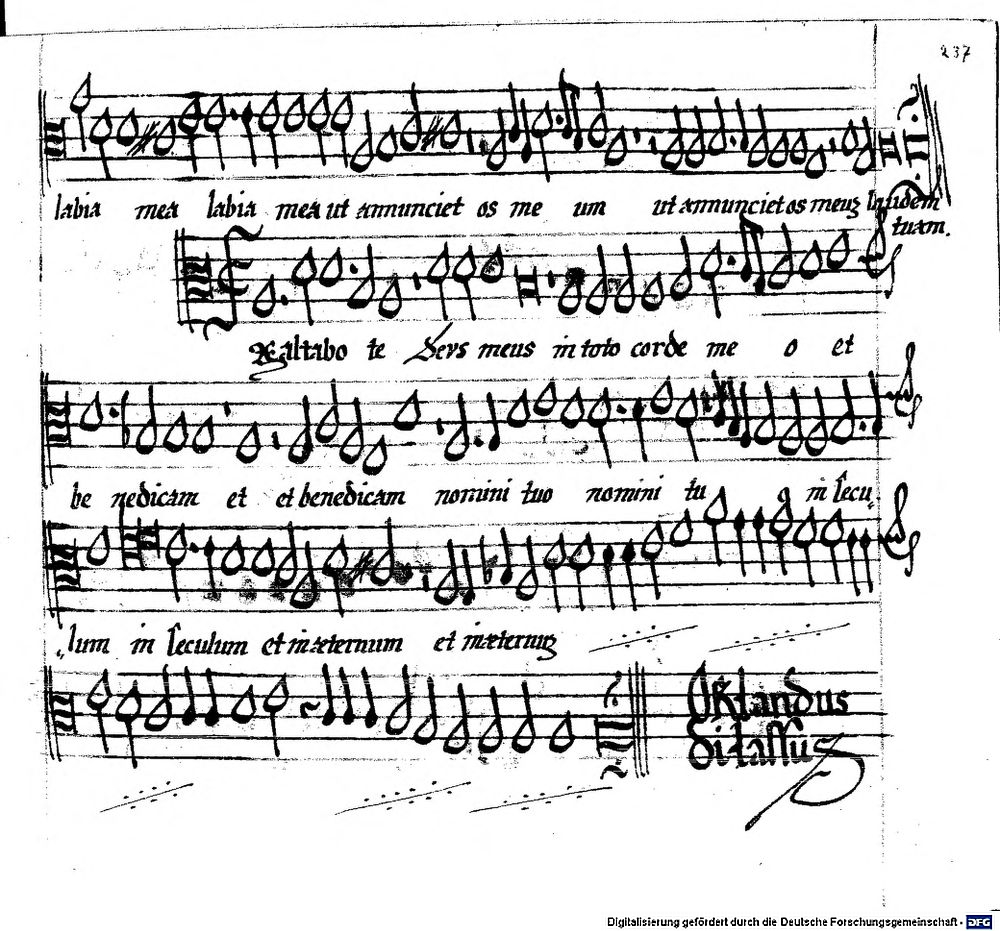 237
labia mea labia mea ut annunciet os me um ut annunciet os meuz laudem
tuam.
Exaltabo te Devs meus in toto corde me o et
be nedicam et et benedicam nomini tuo nomini tu in secu„
„lum in seculum et in æternum et in æternuz
Orlandus
di lassus
Digitalisierung gefördert durch die Deutsche Forschungsgemeinschaft - DFG